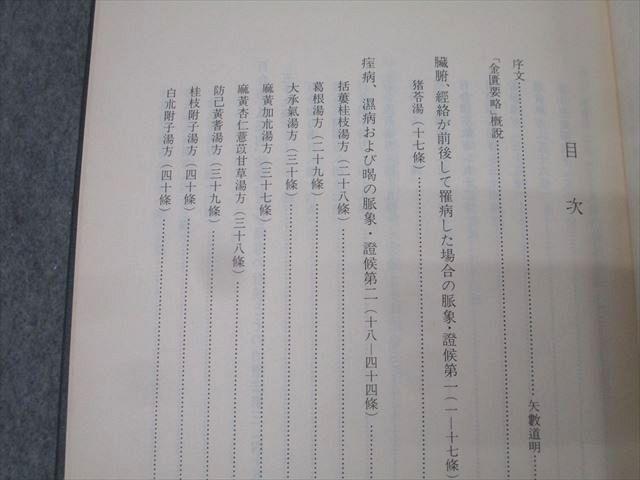 目次
序文……………………矢數道明
「金匱要略」概說……………………
臟腑、經絡が前後して罹病した場合の脈象・證候第一(一―十七條)
猪苓湯(十七條)……………………
痙病、濕病および暍の脈象・證候第二(十八―四十四條)……
括蔞桂枝湯方(二十八條)……………………
葛根湯方(二十九條)……………………
大承氣湯方(三十條)……………………
麻黃加朮湯方(三十七條)……………………
麻黃杏仁薏苡甘草湯方(三十八條)……………………
防己黃耆湯方(三十九條)……………………
桂枝附子湯方(四十條)……………………
白朮附子湯方(四十條)……………………